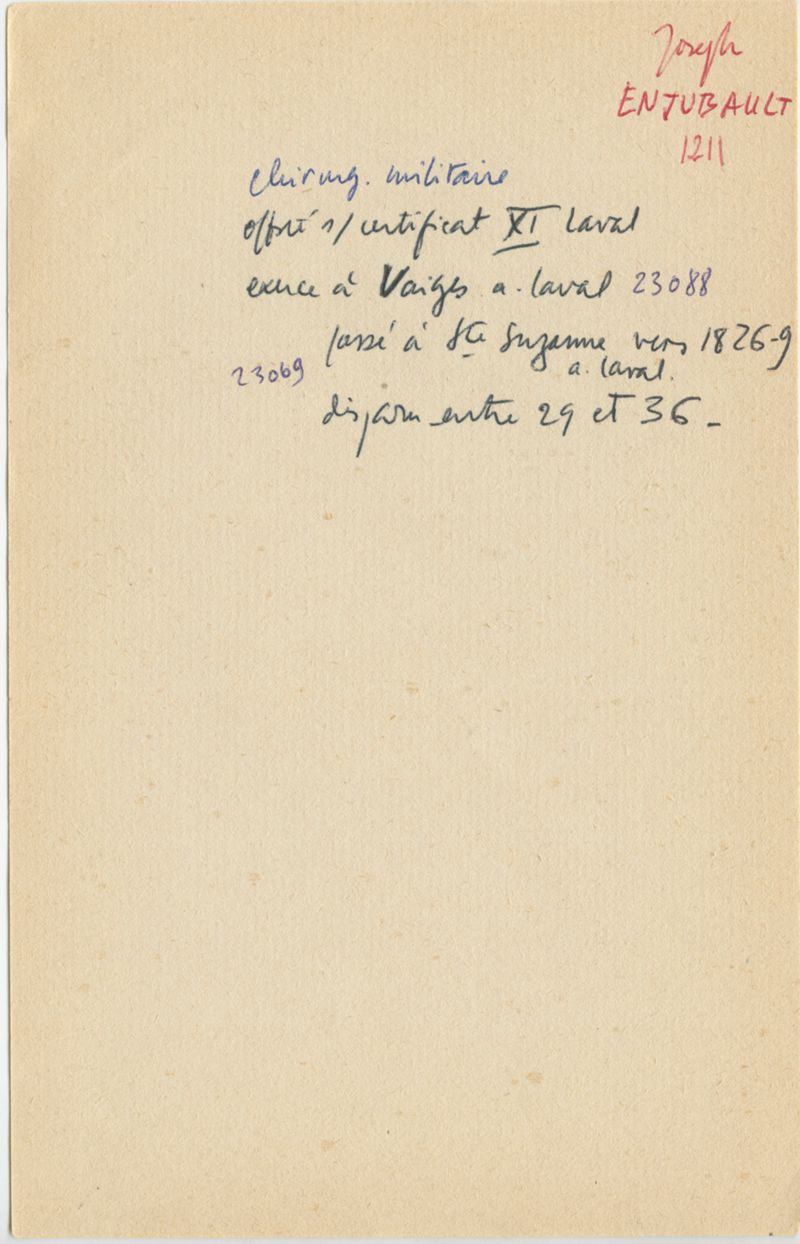 Joseph
ENJUBAULT
1211
chirurg. militaire
s/certificat XI Laval
exerce à Vaiges a. Laval 23088
passé à Ste Suzanne vers 1826-9
23069 a. Laval.
disparu entre 29 et 36 -